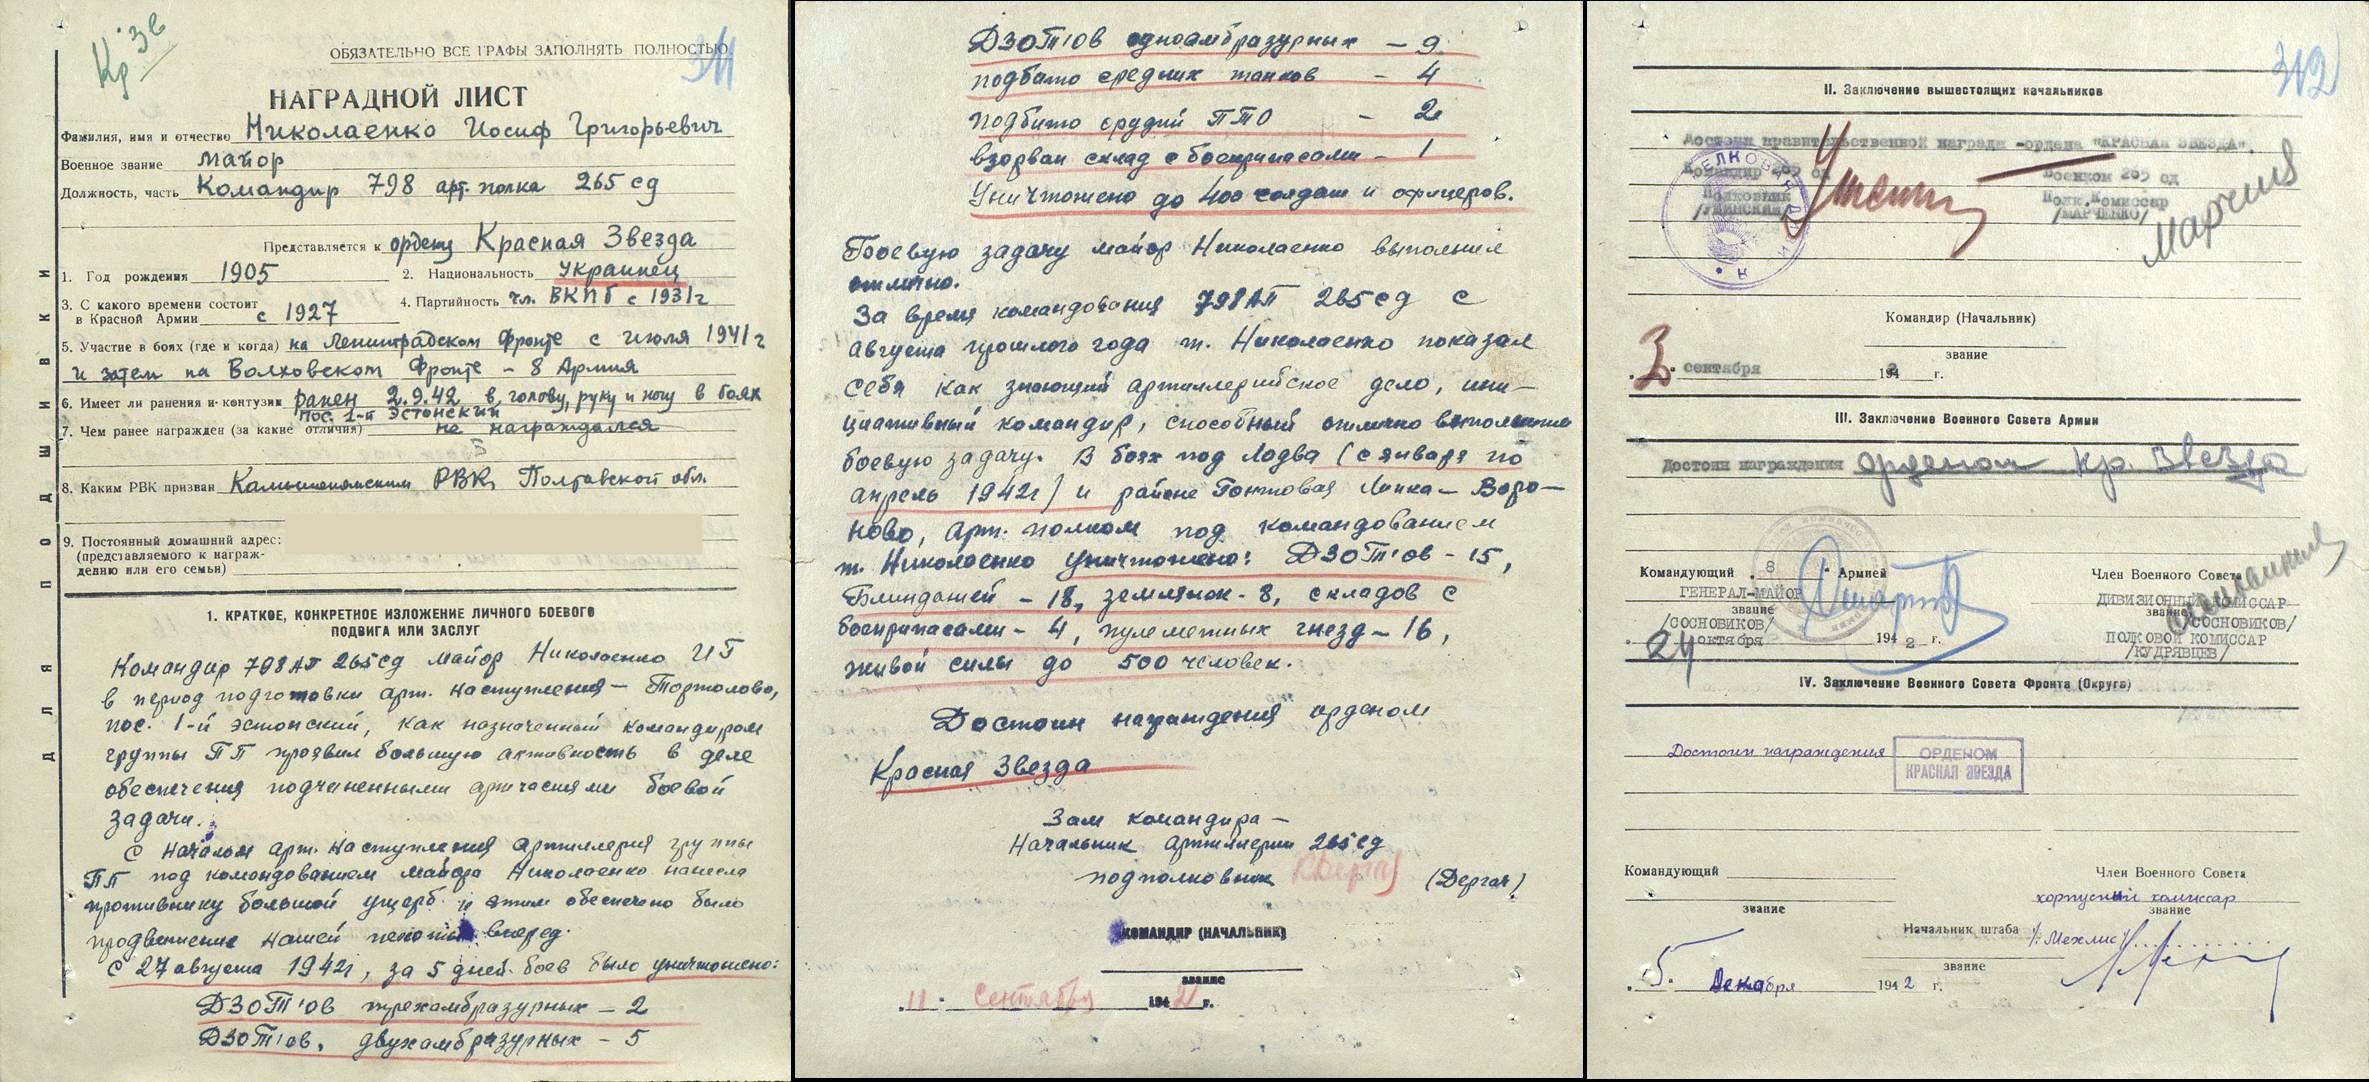 Кр Зв
ОБЯЗАТЕЛЬНО ВСЕ ГРАФЫ ЗАПОЛНЯТЬ ПОЛНОСТЬЮ
311
НАГРАДНОЙ ЛИСТ
Фамилия, имя и отчество Николаенко Иосиф Григорьевич
Военное звание майор
Должность, часть Командир 798 арт. полка 265 сд
Представляется к ордену Красная Звезда
1. Год рождения 1905 2. Национальность украинец
3. С какого времени состоит в Красной Армии с 1927 4. Партийность чл. ВКПб с 1931г
5. Участие в боях (где и когда) на Ленинградском Фронте с июля 1941г
и затем на Волховском Фронте - 8 Армия
6. Имеет ли ранения и контузии ранен 2.9.42 в голову, руку и ногу в боях
пос. 1-й Эстонский
7. Чем ранее награжден (за какие отличия) не награждался
8. Каким РВК призван РВК, Полтавской обл.
9. Постоянный домашний адрес:
(представляемого к награж-
дению или его семьи)
ДЛЯ ПОДШИВКИ
1. КРАТКОЕ, КОНКРЕТНОЕ ИЗЛОЖЕНИЕ ЛИЧНОГО БОЕВОГО
ПОДВИГА ИЛИ ЗАСЛУГ
Командир 798 АП 265 сд майор Николаенко ИГ
в период подготовки арт. наступления - Тортолово,
пос. 1-й эстонский, как назначенный командиром
группы ПП проявил большую активность в деле
обеспечения подчиненными артчастями боевой
задачи.
С началом арт. наступления артиллерия группы
ПП под командованием майора Николаенко нанесла
противнику большой ущерб и этим обеспечено было
продвижение нашей пехоты вперед.
С 27 августа 1942г, за 5 дней боев было уничтожено:
ДЗОТ'ов трехамбразурных - 2
ДЗОТ'ов, двухамбразурных - 5
ДЗОТ'ов одноамбразурных - 9
подбито средних танков - 4
подбито орудий ПТО - 2
взорван склад с боеприпасами - 1
Уничтожено до 400 солдат и офицеров.
Боевую задачу майор Николаенко выполнил
отлично.
За время командования 798 АП 265 сд с
августа прошлого года т. Николаенко показал
себя как знающий артиллерийское дело, ини-
циативный командир, способный отлично выполнить
боевую задачу. В боях под Лодва (с января по
апрель 1942г) и районе Гонтовая Липка - Воро-
ново, арт. полком под командованием
т. Николаенко уничтожено: ДЗОТ'ов - 15,
Блиндажей - 18, землянок - 8, складов с
боеприпасами - 4, пулеметных гнезд - 16,
живой силы до 500 человек.
Достоин награждения орденом
Красная Звезда
Зам командира -
Начальник артиллерии 265 сд
подполковник (Дергач)
КОМАНДИР (НАЧАЛЬНИК)
звание
11 сентября 1942 г.
312
II. Заключение вышестоящих начальников
Достоин правительственной награды - ордена "КРАСНАЯ ЗВЕЗДА"
Командир 265 сд Военком 265 сд
Полковник Полк. Комиссар
/УШИНСКИЙ/ /МАРЧЕНКО/
Командир (Начальник)
звание
3 сентября 1942 г.
III. Заключение Военного Совета Армии
Достоин награждения орденом Кр. Звезда
Командующий 8 Армией Член Военного Совета
ГЕНЕРАЛ-МАЙОР ДИВИЗИОННЫЙ КОМИССАР
звание звание
/СОСНОВИКОВ/ /СОСНОВИКОВ/
24 октября 1942 г. ПОЛКОВОЙ КОМИССАР
/КУДРЯВЦЕВ/
IV. Заключение Военного Совета Фронта (Округа)
Достоин награждения ОРДЕНОМ
КРАСНАЯ ЗВЕЗДА
Командующий Член Военного Совета
звание корпусный комиссар
звание
Начальник штаба /Мехлис/
звание
5 Декабря 1942 г.